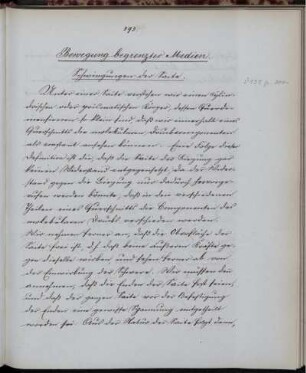 191.
Bewegung begrenzter Medien.
Schwingungen der Saite.
Unter einer Saite verstehen wir einen cylin-
drischen oder prismatischen Körper, dessen Querdi-
mensionen so klein sind, daß wir innerhalb eines
Querschnitts die molekularen Druckcomponenten
als constant ansehen können. Eine Folge dieser
Definition ist die, daß die Saite der Biegung gar
keinen Widerstand entgegensetzt, da der Wider-
stand gegen die Biegung nur dadurch hervorge-
rufen werden könnte, daß in den verschiedenen
Theilen eines Querschnitts die Componenten des
molekularen Drucks verschieden werden.
Wir nehmen ferner an, daß die Oberfläche der
Saite frei ist, daß keine äußeren Kräfte ge-
gen dieselbe wirken und sehen ferner ab von
der Einwirkung der Schwere. Wir müssen dann
annehmen, daß die Enden der Saite fest seien,
und daß der ganzen Saite vor der Befestigung
der Enden eine gewisse Spannung mitgetheilt
worden sei. Aus der Natur der Saite folgt dann,